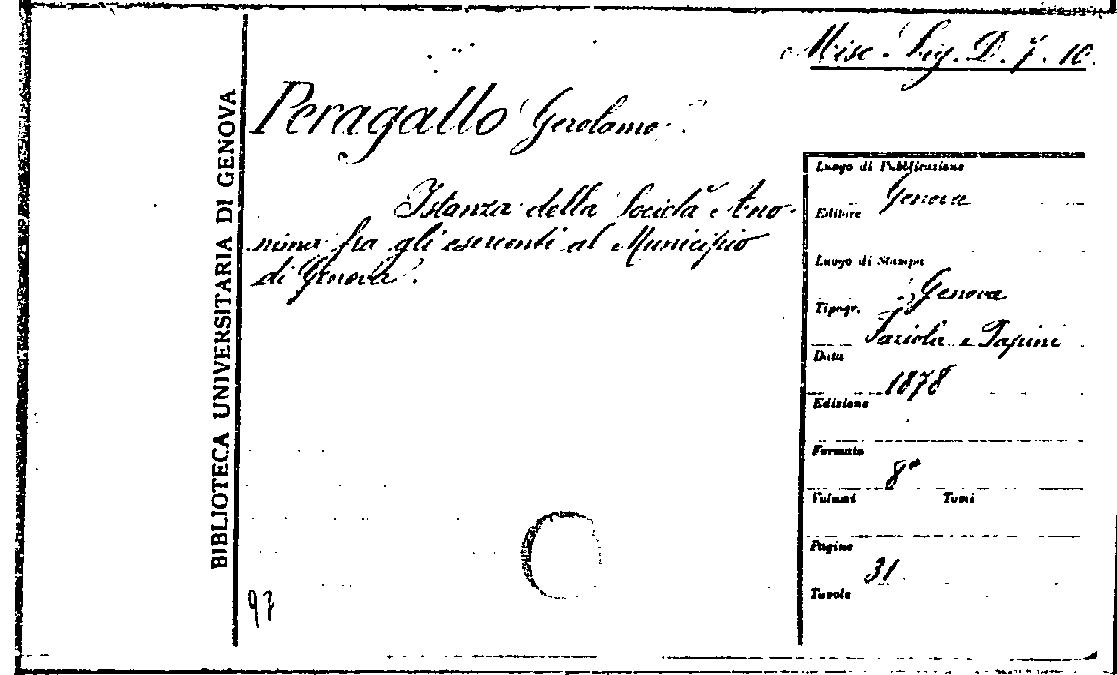 Misc. Lig. D. 7. 10.
BIBLIOTECA UNIVERSITARIA DI GENOVA
Peragallo Gerolamo.
Istanza della Società Ano-
nima fra gli esercenti al Municipio
di Genova.
Luogo di Pubblicazione
Genova
Editore
Luogo di Stampa
Genova
Tipogr.
Faziola e Papini
Data
1878
Edizione
Formato
8°
Volumi Tomi
Pagine
31
Tavole
97